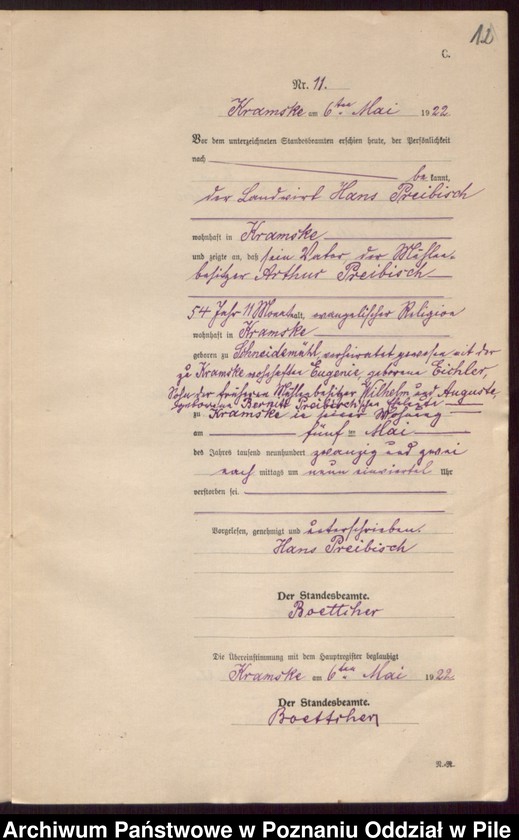 12
C.
Nr. 11.
Kramske am 6ten Mai 1922
Vor dem unterzeichneten Standesbeamten erschien heute, der Persönlichkeit
nach
bekannt,
der Landwirt Hans Preibisch
wohnhaft in Kramske
und zeigte an, daß sein Vater, der Mühlen-
besitzer Arthur Preibisch
54 Jahr 11 Monat alt, evangelischer Religion
wohnhaft in Kramske
geboren zu Schneidemühl, verheiratet gewesen mit der
zu Kramske wohnhaften Eugenie, geborene Eichler,
Sohn der früheren Mühlenbesitzer Wilhelm und Auguste,
geborenen Preibisch'schen Eheleute
zu Kramske in seiner Wohnung
am fünf ten Mai
des Jahres tausend neunhundert zwanzig und zwei
nach mittags um neun einviertel Uhr
verstorben sei.
Vorgelesen, genehmigt und unterschrieben.
Hans Preibisch
Der Standesbeamte.
Boettcher
Die Übereinstimmung mit dem Hauptregister beglaubigt
Kramske am 6ten Mai 1922.
Der Standesbeamte.
Boettcher
Archiwum Państwowe w Poznaniu Oddział w Pile